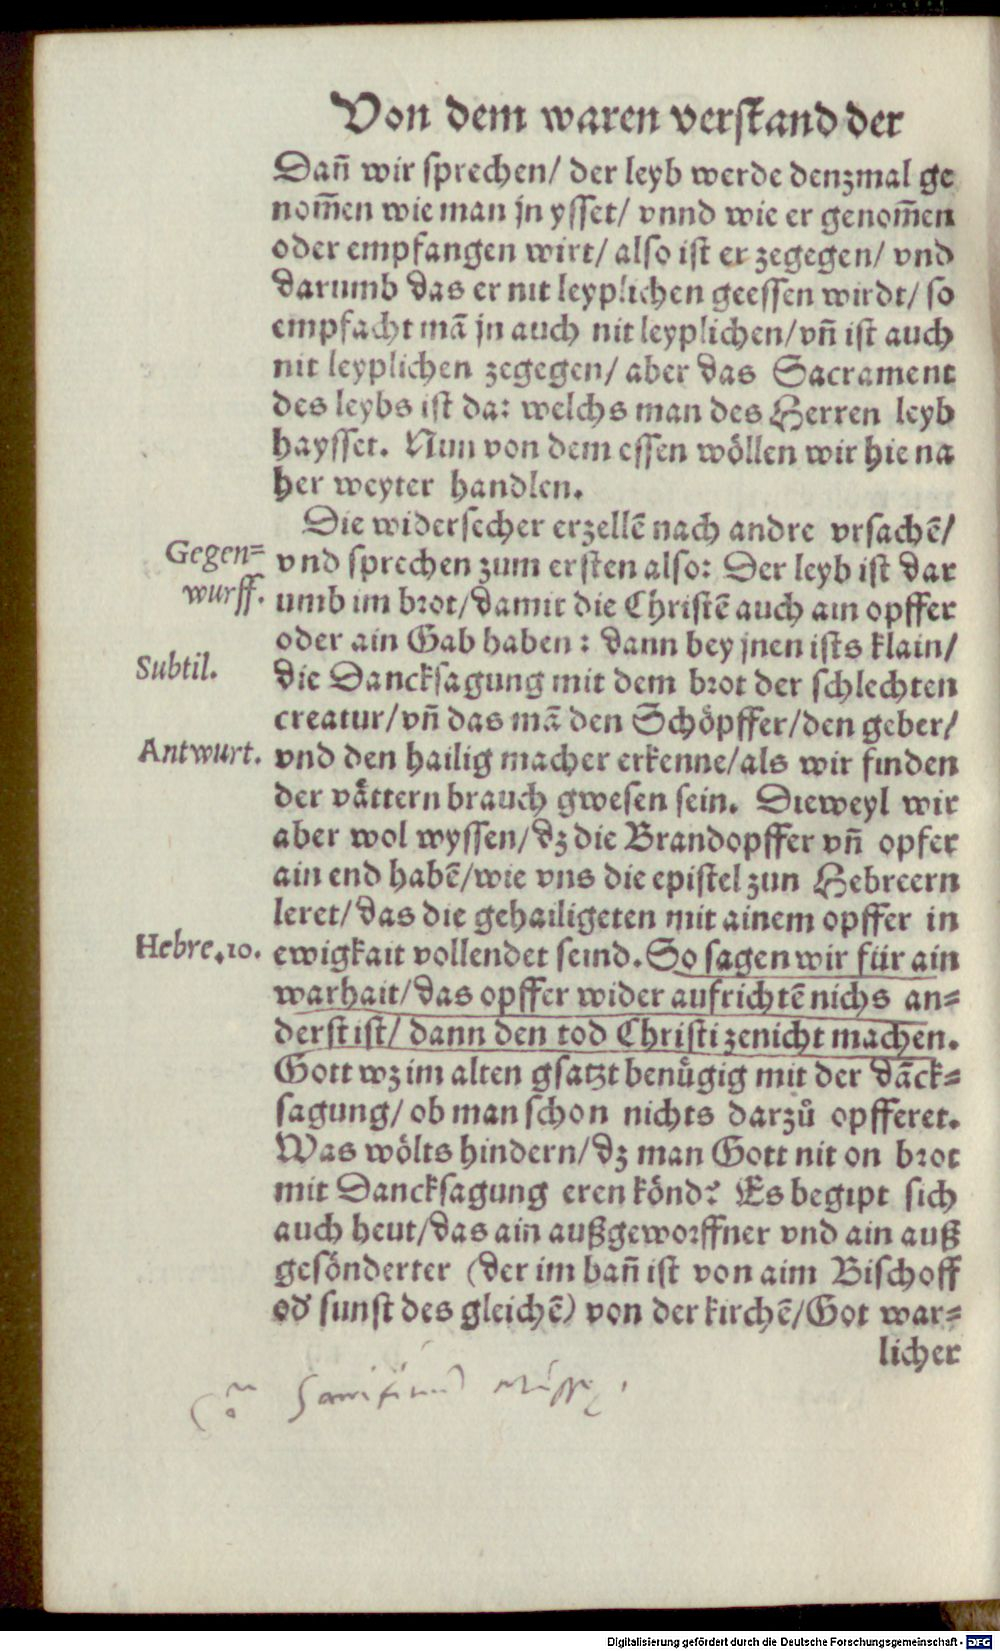 Von dem waren verstand der
Dañ wir sprechen/ der leyb werde denzmal ge
nom̃en wie man jn ysset/ vnnd wie er genom̃en
oder empfangen wirt/ also ist er zegegen/ vnd
darumb das er nit leyplichen geessen wirdt/ so
empfacht mã jn auch nit leyplichen/ vñ ist auch
nit leyplichen zegegen/ aber das Sacrament
des leybs ist da: welchs man des Herren leyb
haysset. Nun von dem essen wöllen wir hie na
her weyter handlen.
Die widersecher erzellẽ nach andre vrsachẽ/
Gegen=
vnd sprechen zum ersten also: Der leyb ist dar
wurff.
umb im brot/ damit die Christẽ auch ain opffer
oder ain Gab haben: dann bey jnen ists klain/
Subtil.
die Dancksagung mit dem brot der schlechten
creatur/ vñ das mã den Schöpffer/ den geber/
Antwurt.
vnd den hailig macher erkenne/ als wir finden
der vättern brauch gwesen sein. Dieweyl wir
aber wol wyssen/ dz die Brandopffer vñ opfer
ain end habẽ/ wie vns die epistel zun Hebreern
leret/ das die gehailigeten mit ainem opffer in
Hebre.10.
ewigkait vollendet seind. So sagen wir für ain
warhait/ das opffer wider aufrichtẽ nichs an=
derst ist/ dann den tod Christi zenicht machen.
Gott wz im alten gsatzt benügig mit der dãck=
sagung/ ob man schon nichts darzů opfferet.
Was wölts hindern/ dz man Gott nit on brot
mit Dancksagung eren könd? Es begipt sich
auch heut/ das ain außgeworffner vnd ain auß
gesönderter (der im bañ ist von aim Bischoff
od' sunst des gleichẽ) von der kirchẽ/ Got war=
licher
Digitalisierung gefördert durch die Deutsche Forschungsgemeinschaft - DFG